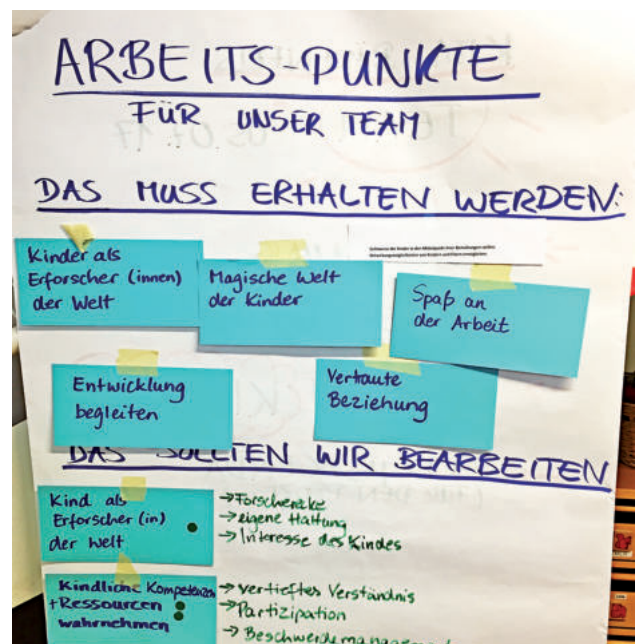 ARBEITS-PUNKTE
FÜR UNSER TEAM
DAS MUSS ERHALTEN WERDEN:
Kinder als
Erforscher (innen)
der Welt
Magische Welt
der Kinder
Spaß an
der Arbeit
Entwicklung
begleiten
Vertraute
Beziehung
DAS SOLLTEN WIR BEARBEITEN
Kind als
Erforscher (in)
der Welt
→ Forscherecke
→ eigene Haltung
→ Interesse des Kindes
Kindliche Kompetenzen
+ Ressourcen
wahrnehmen
→ vertieftes Verständnis
→ Partizipation